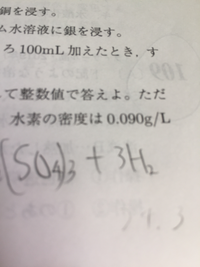 銅を浸す。
ム水溶液に銀を浸す。
ろ 100mL 加えたとき，す
して整数値で答えよ。ただ
水素の密度は0.090g/L
(SO4)3 + 3H2